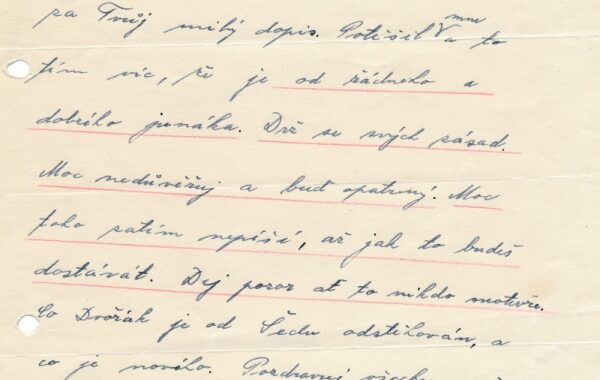 za Tvůj milý dopis. Potěšil mne a to
tím víc, že je od řádneho a
dobrího junáka. Drž se svých zásad.
Moc nedůvěřuj a buď opatrný. Moc
toho zatím nepíši, až jak to budeš
dostávát. Dej pozor ať to nikdo neotevře.
Co Dvořák je od Šedu odstihován, a
co je nového. Pozdravuj všech